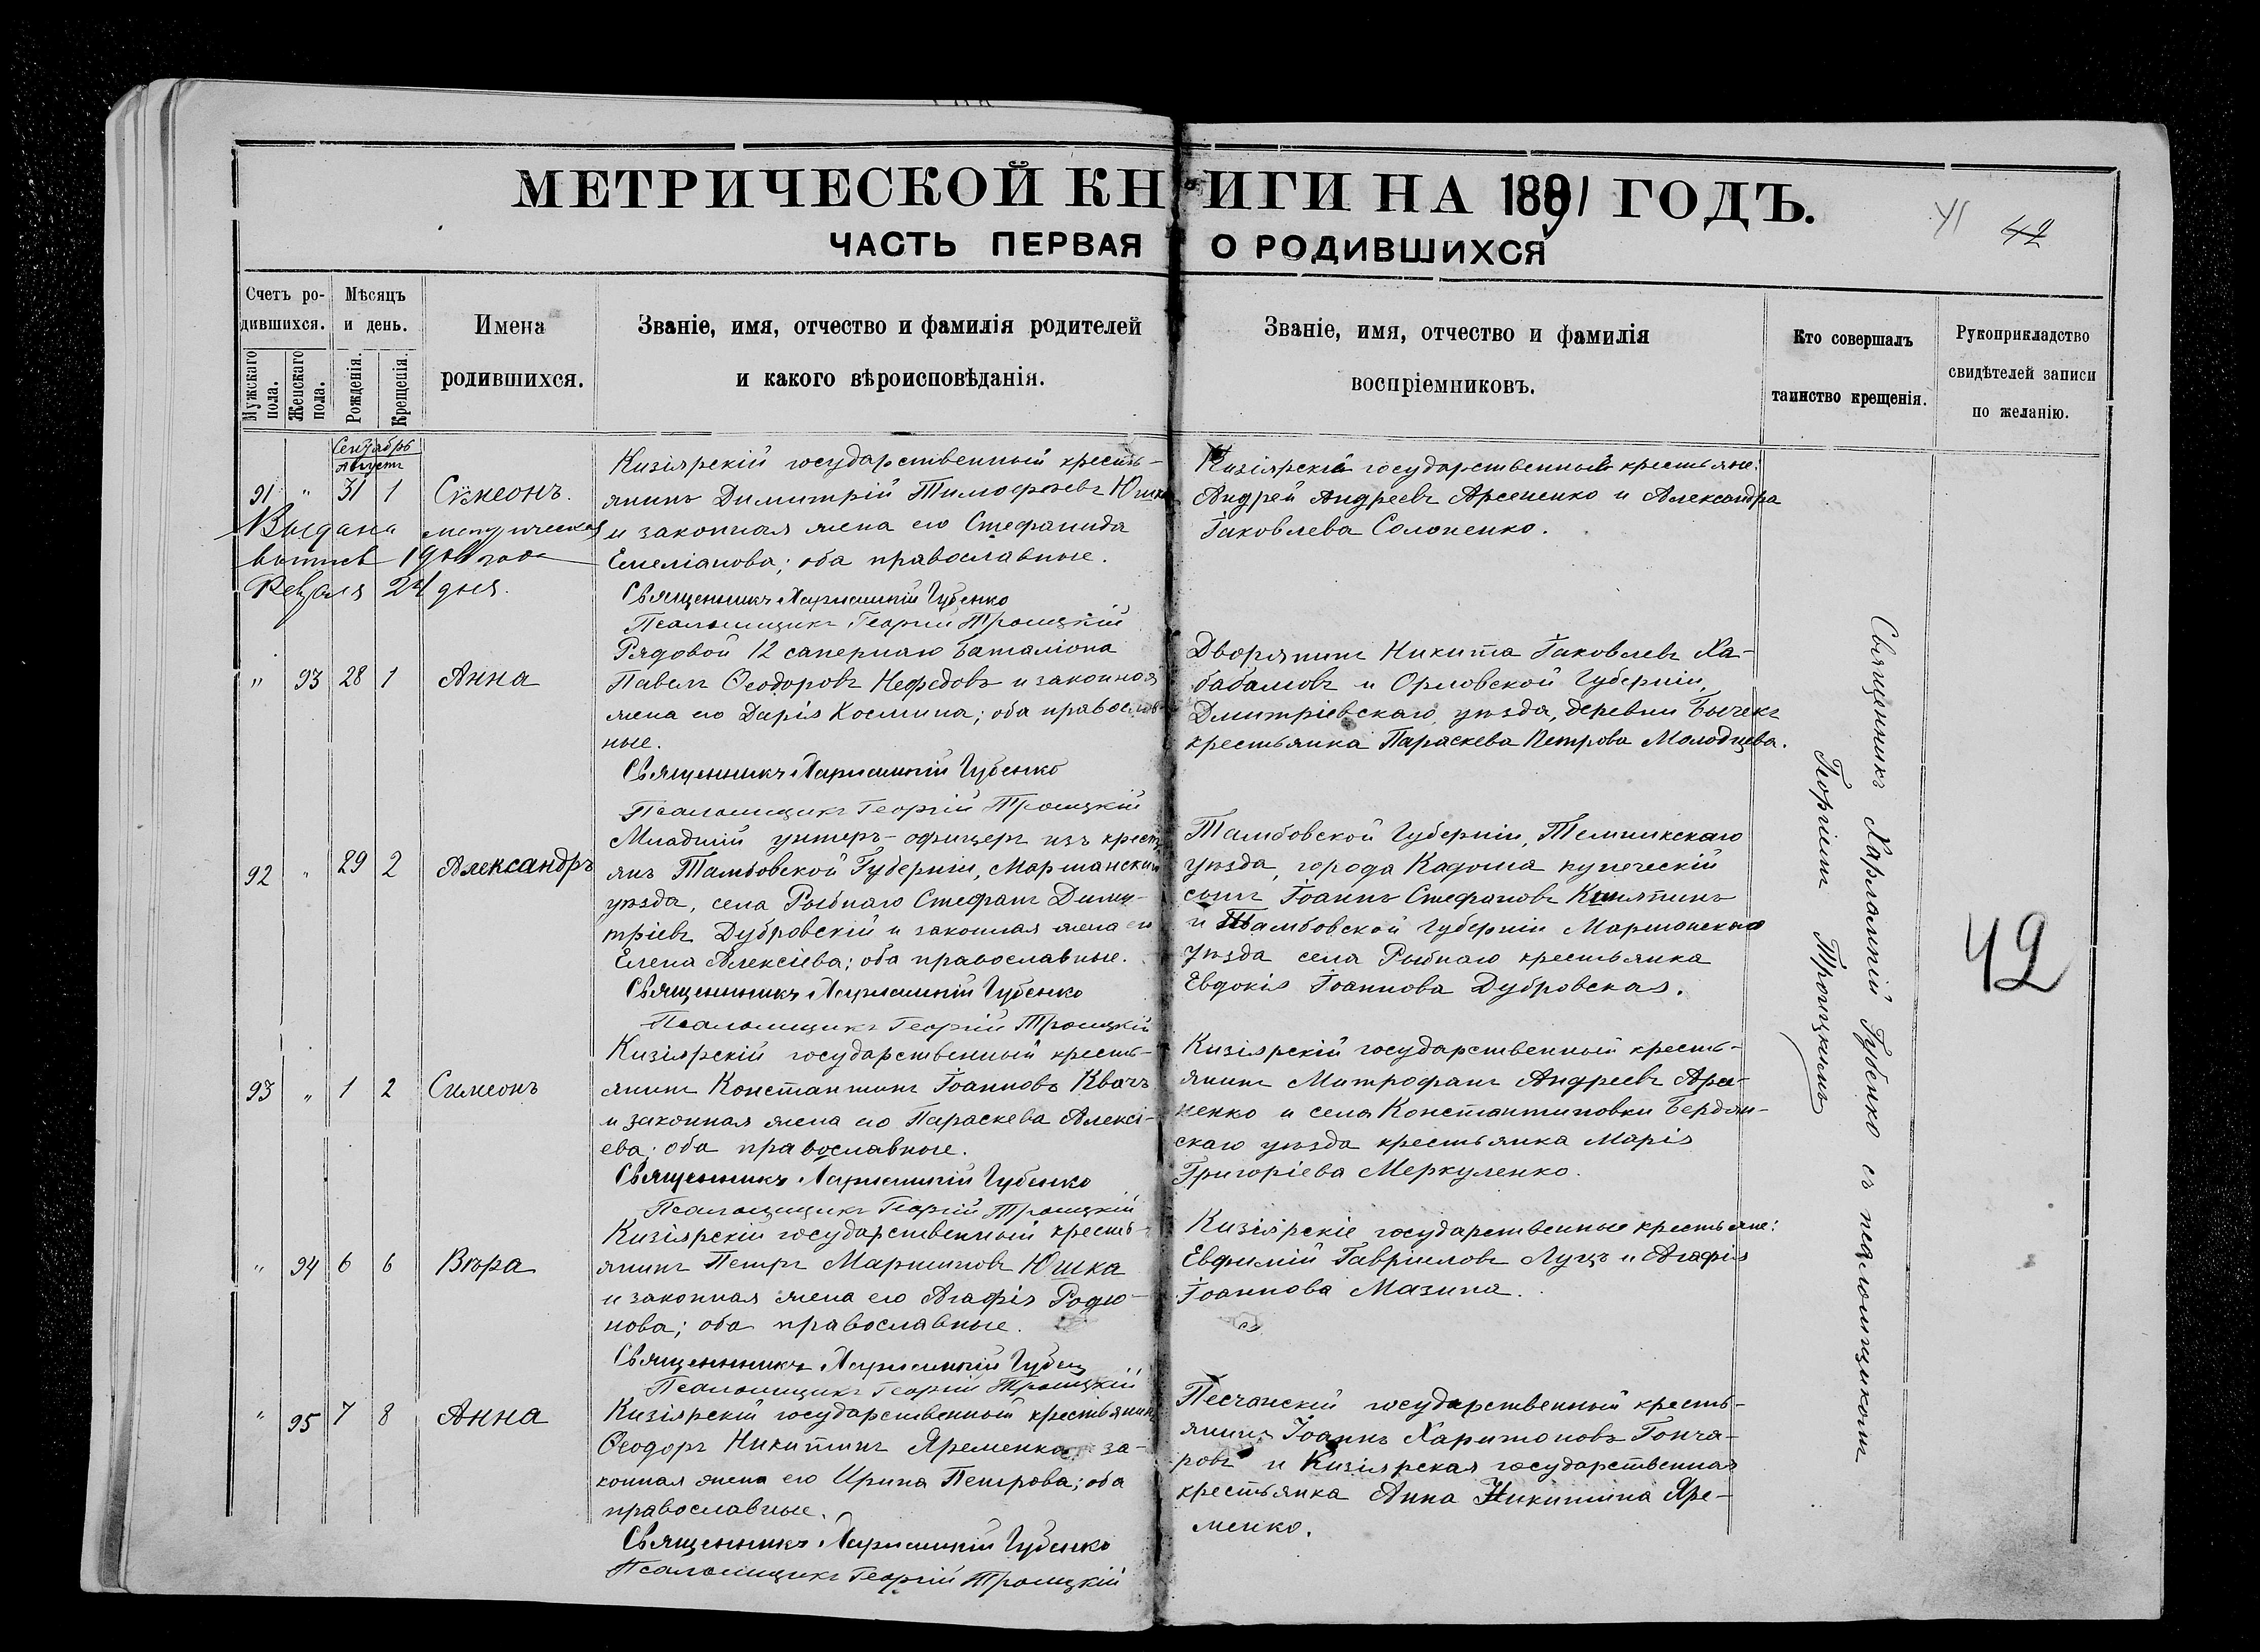 МЕТРИЧЕСКОЙ КНИГИ НА 1891 ГОДЪ.
ЧАСТЬ ПЕРВАЯ О РОДИВШИХСЯ
41 42
Счетъ ро-
дившихся.
Мужскаго пола.
Женскаго пола.
Мѣсяцъ
и день.
Рожденія.
Крещенія.
Имена
родившихся.
Званіе, имя, отчество и фамилія родителей
и какого вѣроисповѣданія.
Званіе, имя, отчество и фамилія
воспріемниковъ.
Кто совершалъ
таинство крещенія.
Рукоприкладство
свидѣтелей записи
по желанію.
Сентябрь
Августъ
91 " 31 1 Сѵмеонъ.
Выдана метрическая
выпись года
24 дня.
Кизіярскій государственный кресть-
янинъ Димитрій Тимофеевъ Юшка
и законная жена его Стефанида
Емеліанова; оба православные.
Священникъ Харлампій Губенко
Псаломщикъ Георгій Троицкій
Кизіярскіе государственные крестьяне:
Андрей Андреевъ Арсененко и Александра
Іаковлева Солоненко.
" 93 28 1 Анна
Рядовой 12 сапернаго баталіона
Павелъ Ѳеодоровъ Нефедовъ и законная
жена его Дарія Космина; оба православ-
ные.
Священникъ Харлампій Губенко
Псаломщикъ Георгій Троицкій
Дворянинъ Никита Іаковлевъ Ха-
бабаловъ и Орловской Губерніи,
Дмитріевскаго уѣзда, деревни Бычекъ
крестьянка Параскева Петрова Молодцева.
92 " 29 2 Александръ
Младшій унтеръ-офицеръ изъ кресть-
янъ Тамбовской Губерніи, Моршанскаго
уѣзда, села Рыбнаго Стефанъ Дими-
тріевъ Дубровскій и законная жена его
Елена Алексіева; оба православные.
Священникъ Харлампій Губенко
Псаломщикъ Георгій Троицкій
Тамбовской Губерніи, Темникскаго
уѣзда, города Кадома купеческій
сынъ Іоаннъ Стефановъ
и Тамбовской Губерніи Моршанскаго
уѣзда села Рыбнаго крестьянка
Евдокія Іоаннова Дубровская.
93 " 1 2 Симеонъ
Кизіярскій государственный кресть-
янинъ Константинъ Іоанновъ Квачъ
и законная жена его Параскева Алексі-
ева; оба православные.
Священникъ Харлампій Губенко
Псаломщикъ Георгій Троицкій
Кизіярскій государственный кресть-
янинъ Митрофанъ Андреевъ Арсе-
ненко и села Константиновки Бердян-
скаго уѣзда крестьянка Марія
Григоріева Меркуленко.
" 94 6 6 Вѣра
Кизіярскій государственный кресть-
янинъ Петръ Мартиновъ Юшка
и законная жена его Агафія Родіо-
нова; оба православные.
Священникъ Харлампій Губенко
Псаломщикъ Георгій Троицкій
Кизіярскіе государственные крестьяне:
Евфимій Гавріиловъ Луцъ и Агафія
Іоаннова Мазина.
" 95 7 8 Анна
Кизіярскій государственный крестьянинъ
Ѳеодоръ Никитинъ Яременко и за-
конная жена его Ирина Петрова; оба
православные.
Священникъ Харлампій Губенко
Псаломщикъ Георгій Троицкій
Песчанскій государственный кресть-
янинъ Іоаннъ Харитоновъ Гонча-
ровъ и Кизіярская государственная
крестьянка Анна Никитина Яре-
менко.
Священникъ Харлампій Губенко съ псаломщикомъ
Георгіемъ Троицкимъ
42